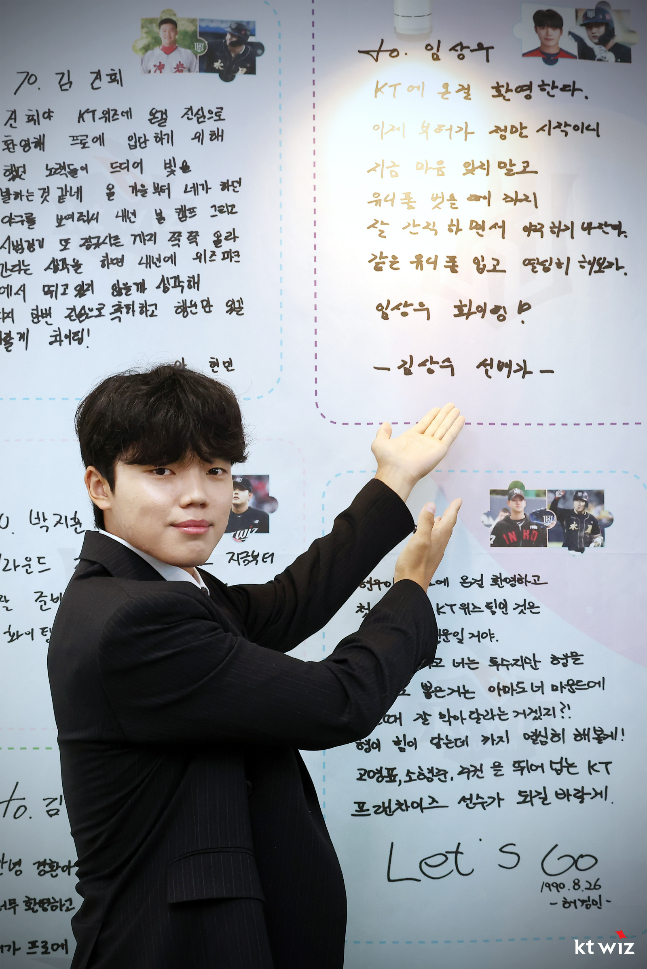 TO. 김 건희
건희야 KT위즈에 온걸 진심으로
환영해 프로에 입단하기 위해
했던 노력들이 드디어 빛을
발하는것 같네 올 가을부터 네가 하던
야구를 보여줘서 내년 봄 캠프 그리고
시범경기 또 정규시즌 까지 쭉쭉 올라
간다는 생각을 하면 내년에 위즈파크
에서 뛰고 있지 않을까 생각해
다시 한번 진심으로 축하하고
화이팅!
현민
to. 임상우
KT에 온걸 환영한다.
이제 부터가 정말 시작이니
지금 마음 잊지말고
유니폼 벗을 때 까지
잘 간직 하면서 야구하기 바란다.
같은 유니폼 입고 열심히 해보자.
임상우 화이팅!
- 김상수 선배가 -
박지훈
라운드
지금부터
준비
화이팅
INHD
온걸 환영하고
KT위즈팀인 것은
거야.
너는 투수지만
뽑은거는 아마도 너 마운드에
잘 막아달라는 거겠지?!
형이 힘이 닿는데 까지 열심히 해볼게!
고영표, 소형준, 을 뛰어 넘는 KT
프랜차이즈 선수가 되길 바랄게.
Let's Go
1990.8.26
- 허경민 -
to. 김
안녕 경환아
너무 환영하고
프로에
kt wiz